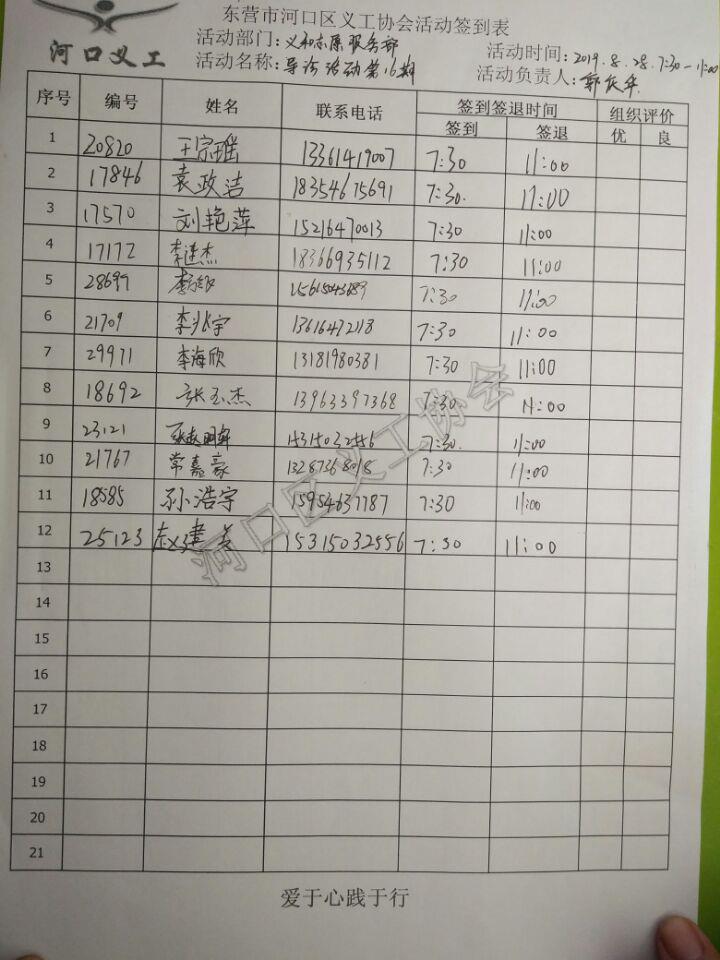 东营市河口区义工协会活动签到表
河口义工
活动部门：义和志愿服务部
活动时间：2019.8.28.7:30-11:00
活动名称：导诊活动第16期
活动负责人：
序号 编号 姓名 联系电话 签到签退时间 组织评价
签到 签退 优 良
1 20820 王宗瑶 13361419007 7:30 11:00
2 17846 袁政洁 18354675691 7:30. 11:00
3 17570 刘艳萍 15216470013 7:30 11:00
4 17172 李连杰 18366935112 7:30 11:00
5 7:30 11:00
6 21709 李兆宇 7:30 11:00
7 29971 李海欣 13181980381 7:30 11:00
8 18692 张玉杰 13963397368 7:30 11:00
9 23121 7:30. 11:00
10 21767 常嘉豪 13287368018 7:30 11:00
11 18585 孙浩宇 15954637787 7:30 11:00
12 25123 赵建 15315032556 7:30 11:00
13
14
15
16
17
18
19
20
21
河口区义工协会
爱于心践于行